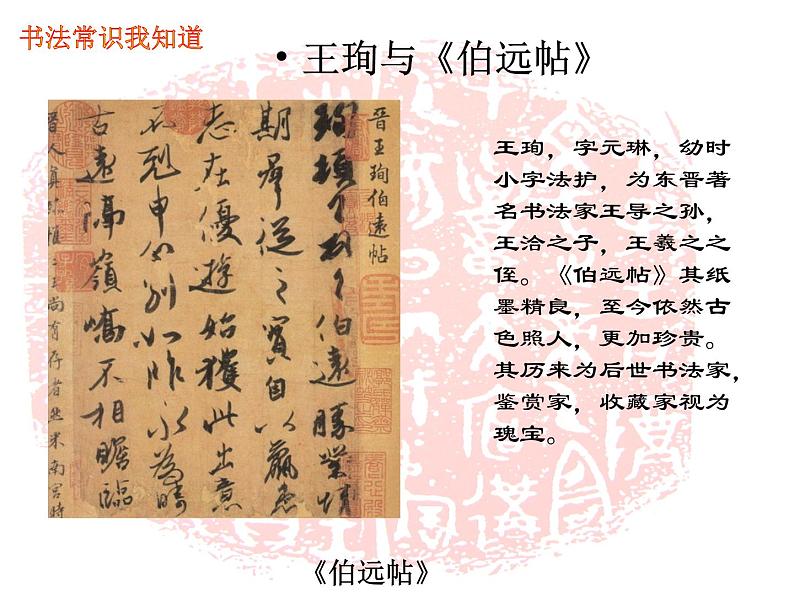 书法常识我知道
• 王珣与《伯远帖》
晋王珣伯远帖
珣頓首頓首伯遠勝業情
期群從之寶自以羸患
志在優遊始獲此出意
不剋申分別如昨永為疇
古遠隔嶺嶠不相瞻臨
王珣，字元琳，幼时
小字法护，为东晋著
名书法家王导之孙，
王洽之子，王羲之之
侄。《伯远帖》其纸
墨精良，至今依然古
色照人，更加珍贵。
其历来为后世书法家，
鉴赏家，收藏家视为
瑰宝。
《伯远帖》